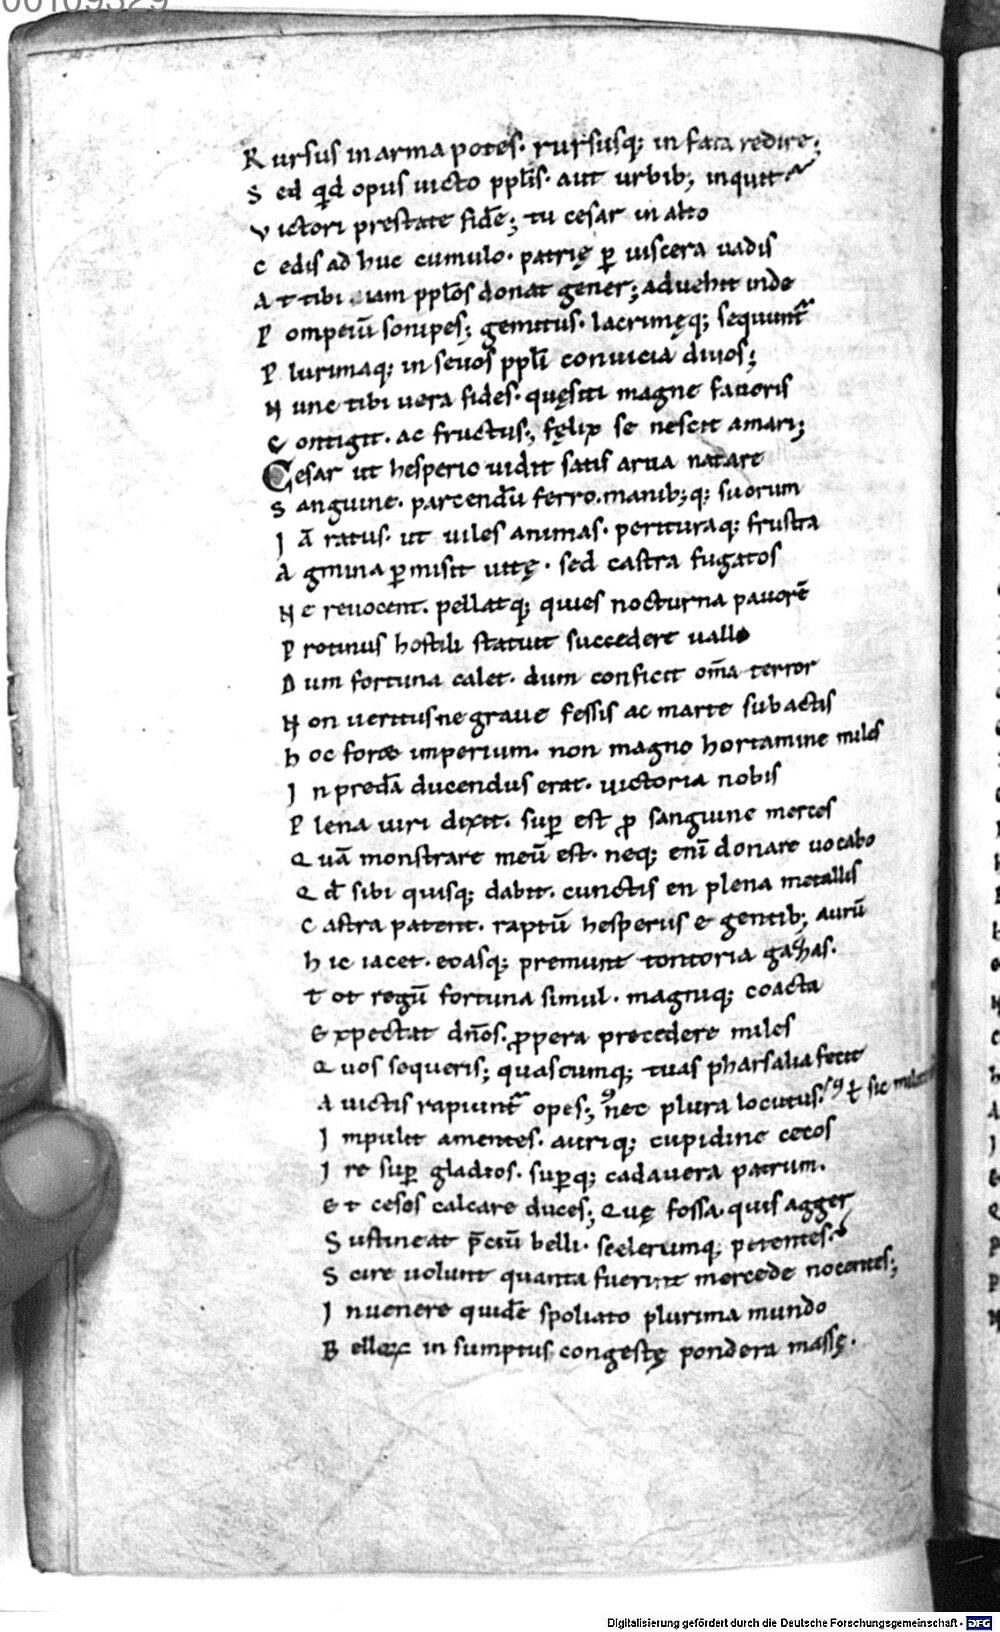 00109329
R ursus in arma potes· rursusq; in fata redire;
S ed qd opus uicto ppłis· aut urbib; inquit
V ictori prestate fidē; tu cesar in alto
C edis ad huc cumulo· patrię ꝑ uiscera uadis
A t tibi iam ppłos donat gener; aduehit inde
P ompeiū sonipes; gemitus· lacrimęq; sequunt᷑
P lurimaq; in seuos ppłi conuicia diuos;
N unc tibi uera fides· quęsiti magne fauoris
C ontigit· ac fructus; fęlix se nescit amari;
Cesar ut hesperio uidit satis arua natare
S anguine· parcendū ferro· manib;q; suorum
I ā ratus· ut uiles animas· perituraq; frustra
A gmina ꝑmisit uitę· sed castra fugatos
N e reuocent· pellatq; quies nocturna pauorē
P rotinus hostili statuit succedere uallo
D um fortuna calet· dum conficit om̄a terror
N on ueritus ne graue fessis ac marte subactis
h oc foret imperium· non magno hortamine miles
I n predā ducendus erat· uictoria nobis
P lena uiri dixit· suꝑ est ꝓ sanguine merces
Q uā monstrare meū est· neq; enī donare uocabo
Q đ sibi quisq; dabit· cunctis en plena metallis
C astra patent· raptū hesperiis e gentib; aurū
h ic iacet· eoasq; premunt tentoria gazhas·
T ot regū fortuna simul· magniq; coacta
E xpectat dn̄os· ꝓpera precedere miles
Q uos sequeris; quascumq; tuas pharsalia fecit
A uictis rapiunt᷑ opes; nec plura locutus·
I mpulit amentes· auriq; cupidine cecos
I re suꝑ gladios· suꝑq; cadauera patrum·
E t cesos calcare duces; Quę fossa· quis agger
S ustineat p̄ciū belli· scelerumq; petentes·
S cire uolunt quanta fuerint mercede nocentes;
I nuenere quidē spoliato plurima mundo
B ellorꝝ in sumptus congestę pondera massę·
Digitalisierung gefördert durch die Deutsche Forschungsgemeinschaft - DFG